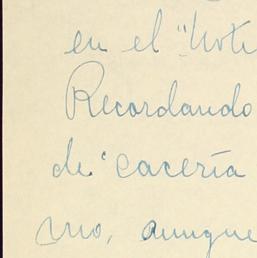 en el "Note
Recordando
de "cacería
mo, aunque